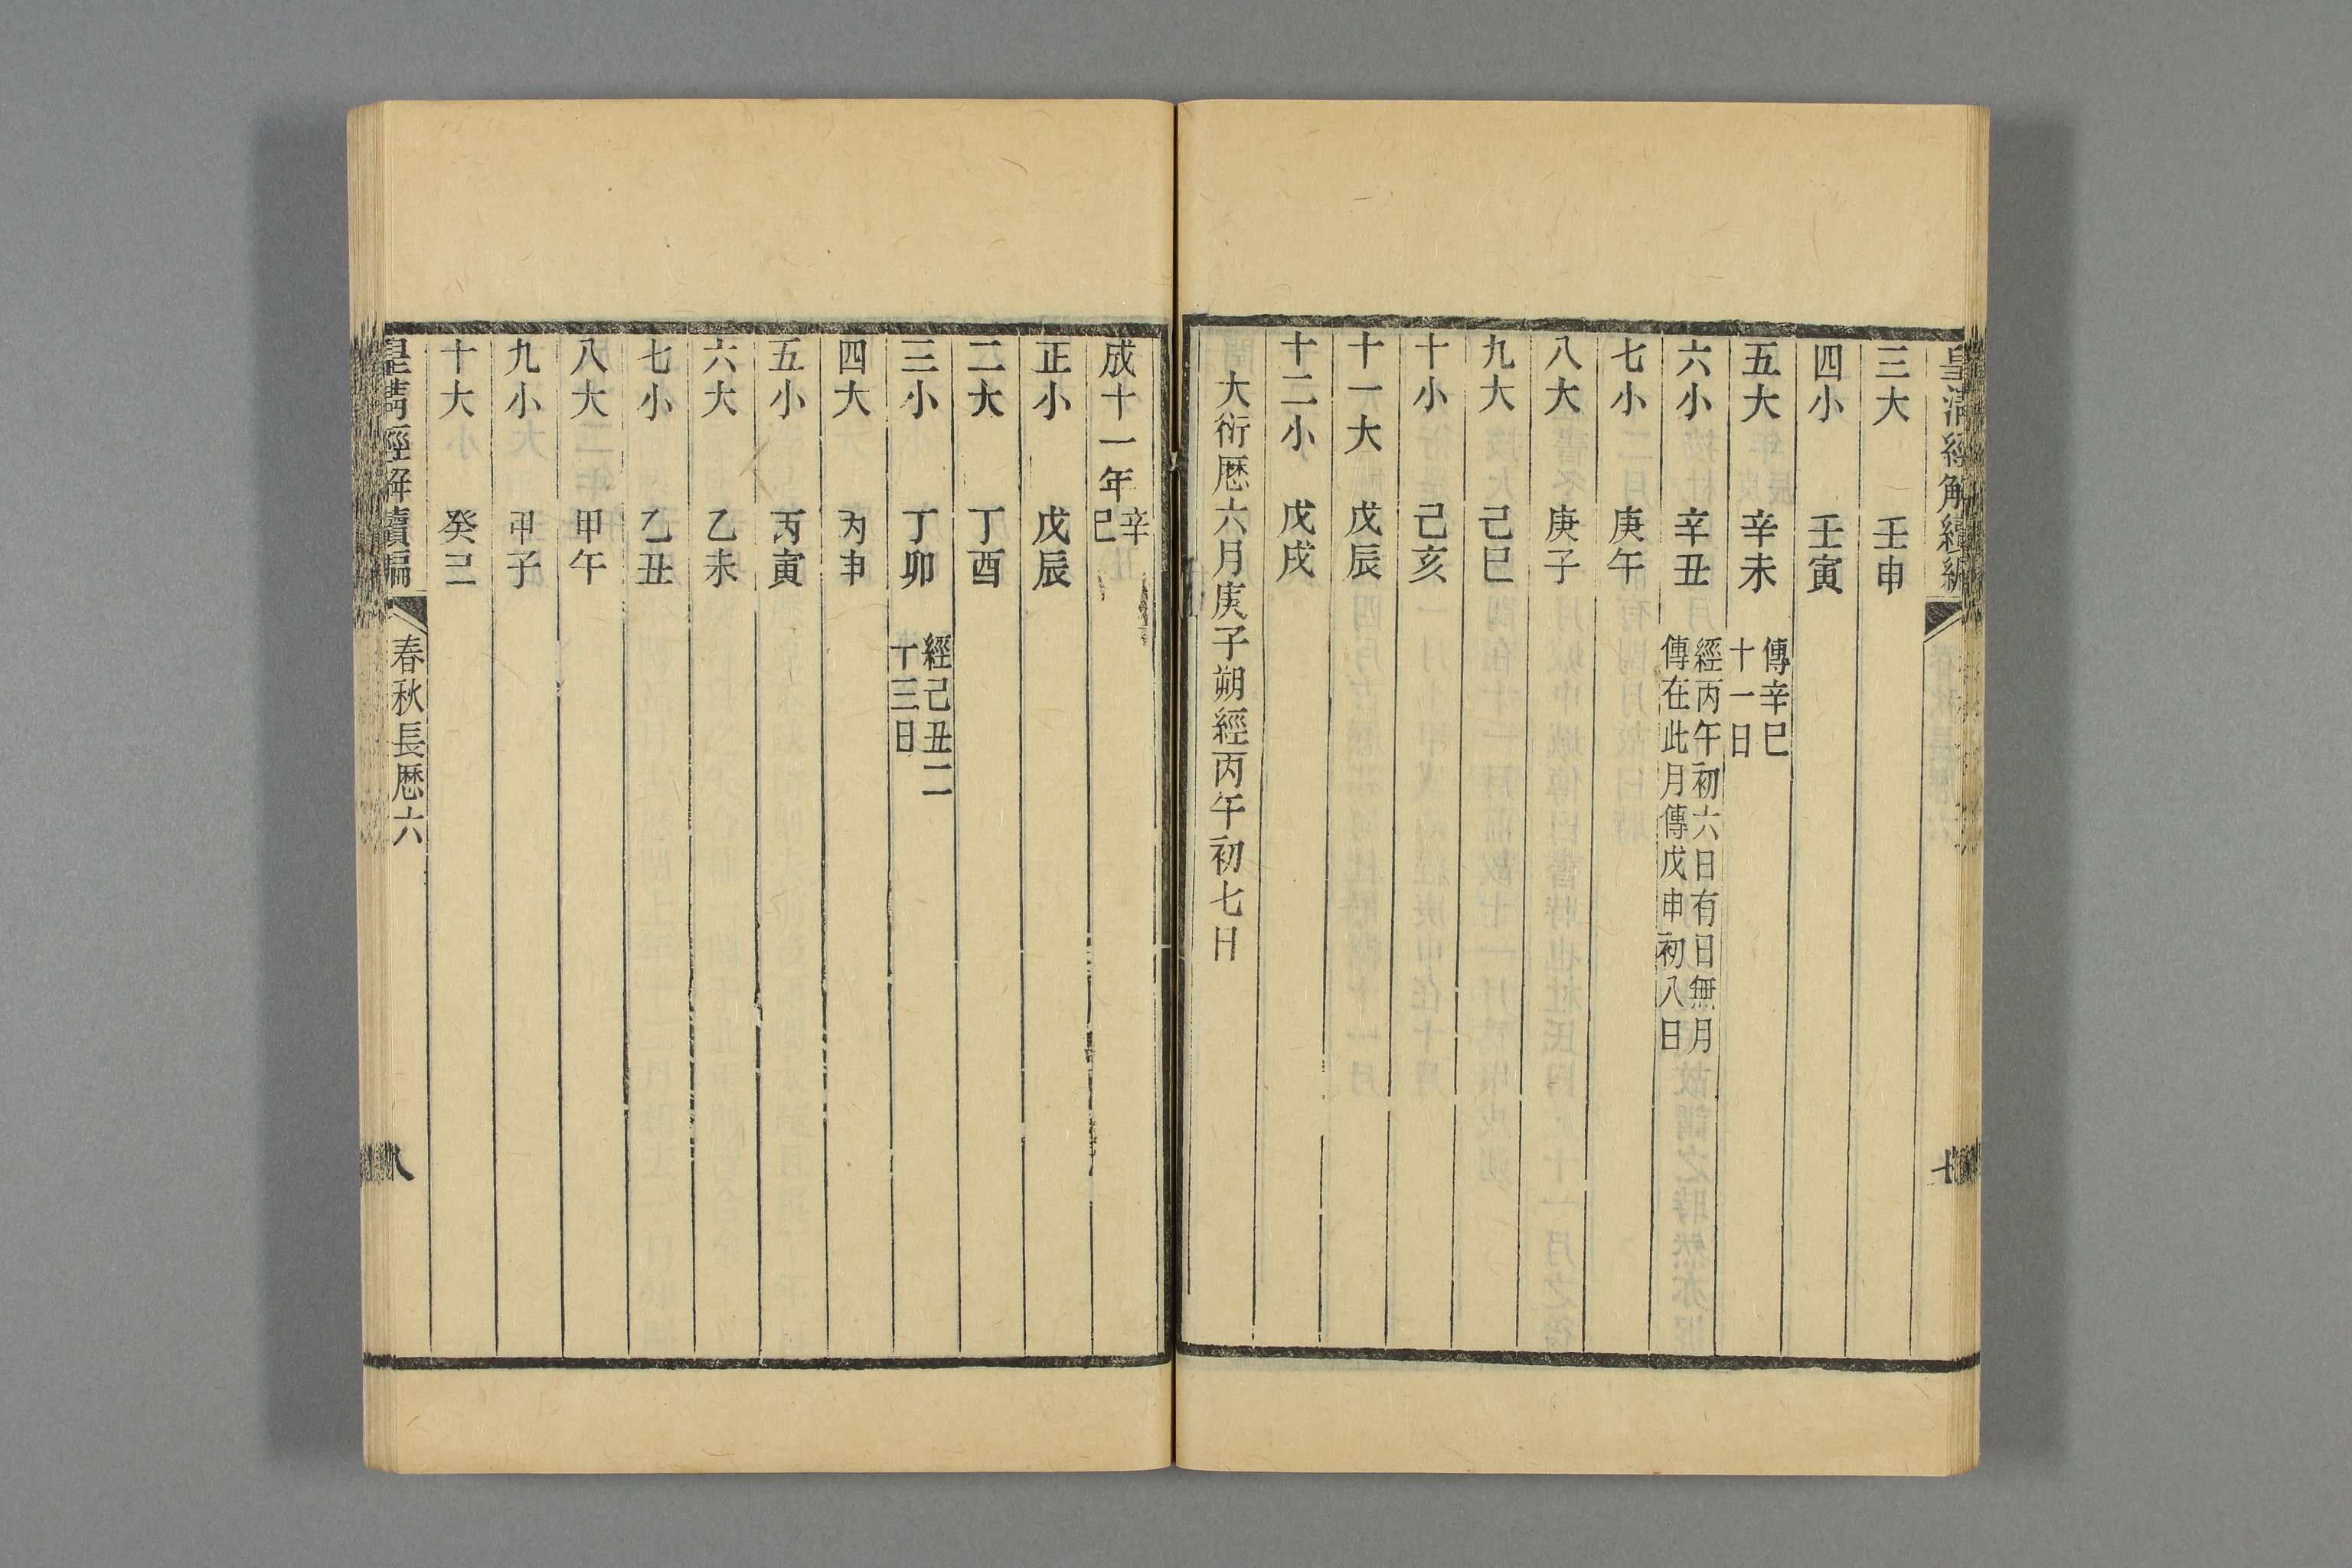 皇清經解續編
三大　壬申
四小　壬寅
五大　辛未　傳辛巳
十一日
六小　辛丑　經丙午初六日有日無月
傳在此月傳戊申初八日
七小　庚午
八大　庚子
九大　己巳
十小　己亥
十一大　戊辰
十二小　戊戌
大衍厯六月庚子朔經丙午初七日
成十一年　辛
巳
正小　戊辰
二大　丁酉
三小　丁卯　經己丑二
十三日
四大　丙申
五小　丙寅
六大　乙未
七小　乙丑
八大　甲午
九小　甲子
十大　癸巳
皇清經解續編　春秋長厯六　八